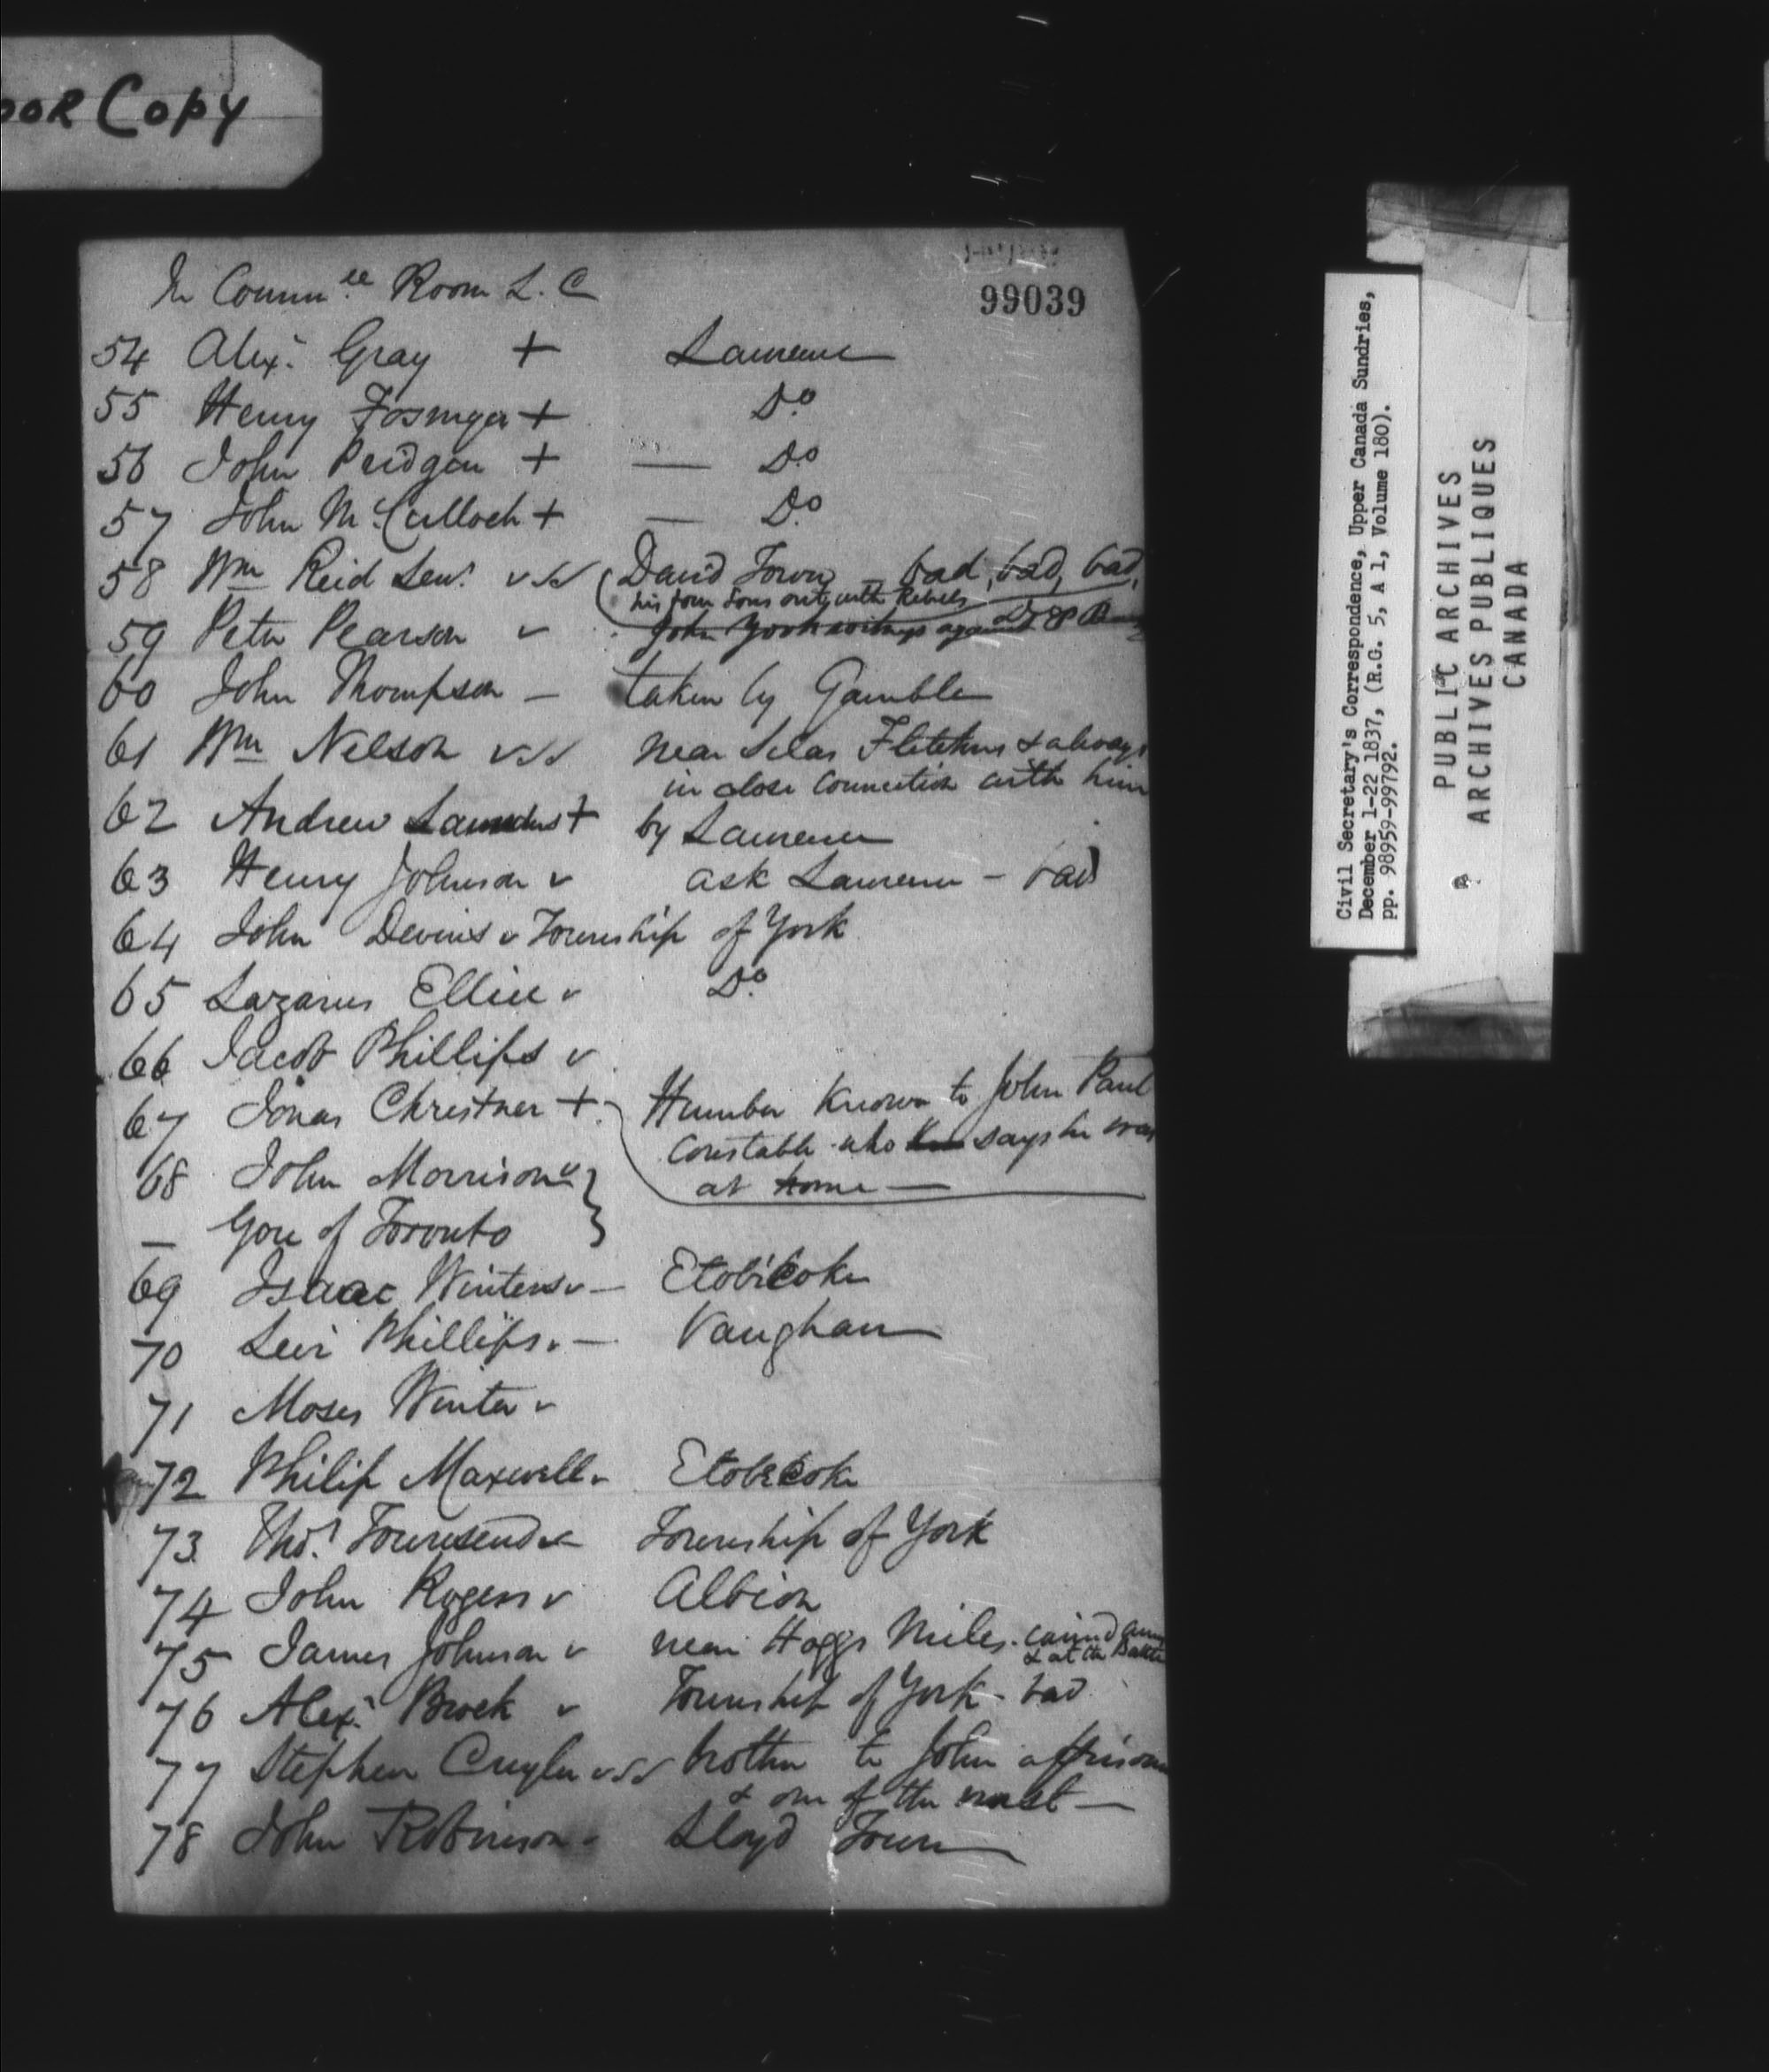 OOR COPY
99039
In Comm.ee Room L. C
54 Alexr. Gray + Lawrence
55 Henry Fosmger + Do
56 John Pridgen + — Do
57 John McCulloch + — Do
58 Wm Reid Senr. v v v David Town — bad, bad, bad,
his four Sons out with Rebels
59 Peter Pearson v John York witness against
60 John Thompson — taken by Gamble
61 Wm Nelson v v v near Silas Fletchers & always
in close connection with him
62 Andrew Saunders + by Lawrence
63 Henry Johnson v ask Lawrence — bad
64 John Devins v Township of York
65 Lazarus Ellice v Do
66 Jacob Phillips v
67 Jonas Christner + Humber Known to John Paul
Constable who says he was
at home —
68 John Morrison v
— Gore of Toronto
69 Isaac Winters v — Etobicoke
70 Levi Phillips v — Vaughan
71 Moses Winter v
72 Philip Maxwell v Etobicoke
73 Thos. Townsend v — Township of York
74 John Rogers v Albion
75 James Johnson v near Hoggs Miles. carried arms
& at the Battle
76 Alexr. Brock v Township of York — bad
77 Stephen Cuyler v v v brother to John a prisoner
& one of the worst —
78 John Robinson Lloyd Town
Civil Secretary's Correspondence, Upper Canada Sundries,
December 1-22 1837, (R.G. 5, A 1, Volume 180).
pp. 98959-99792.
PUBLIC ARCHIVES
ARCHIVES PUBLIQUES
CANADA